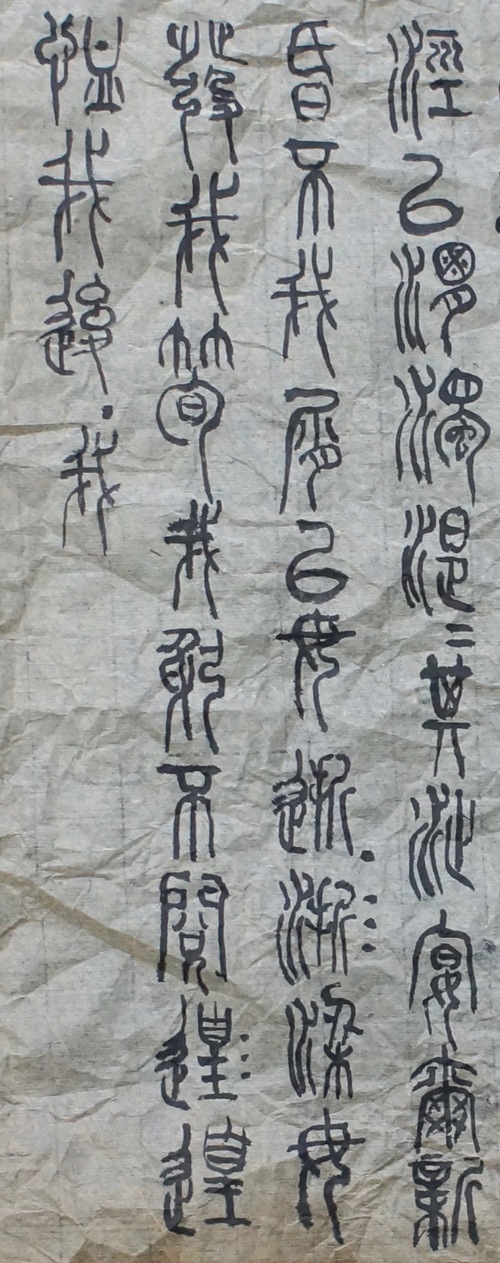 涇以渭濁湜〻其沚宴爾新
昏不我屑以毋逝梁毋
發我笱我躬不閱遑遑
恤我後我